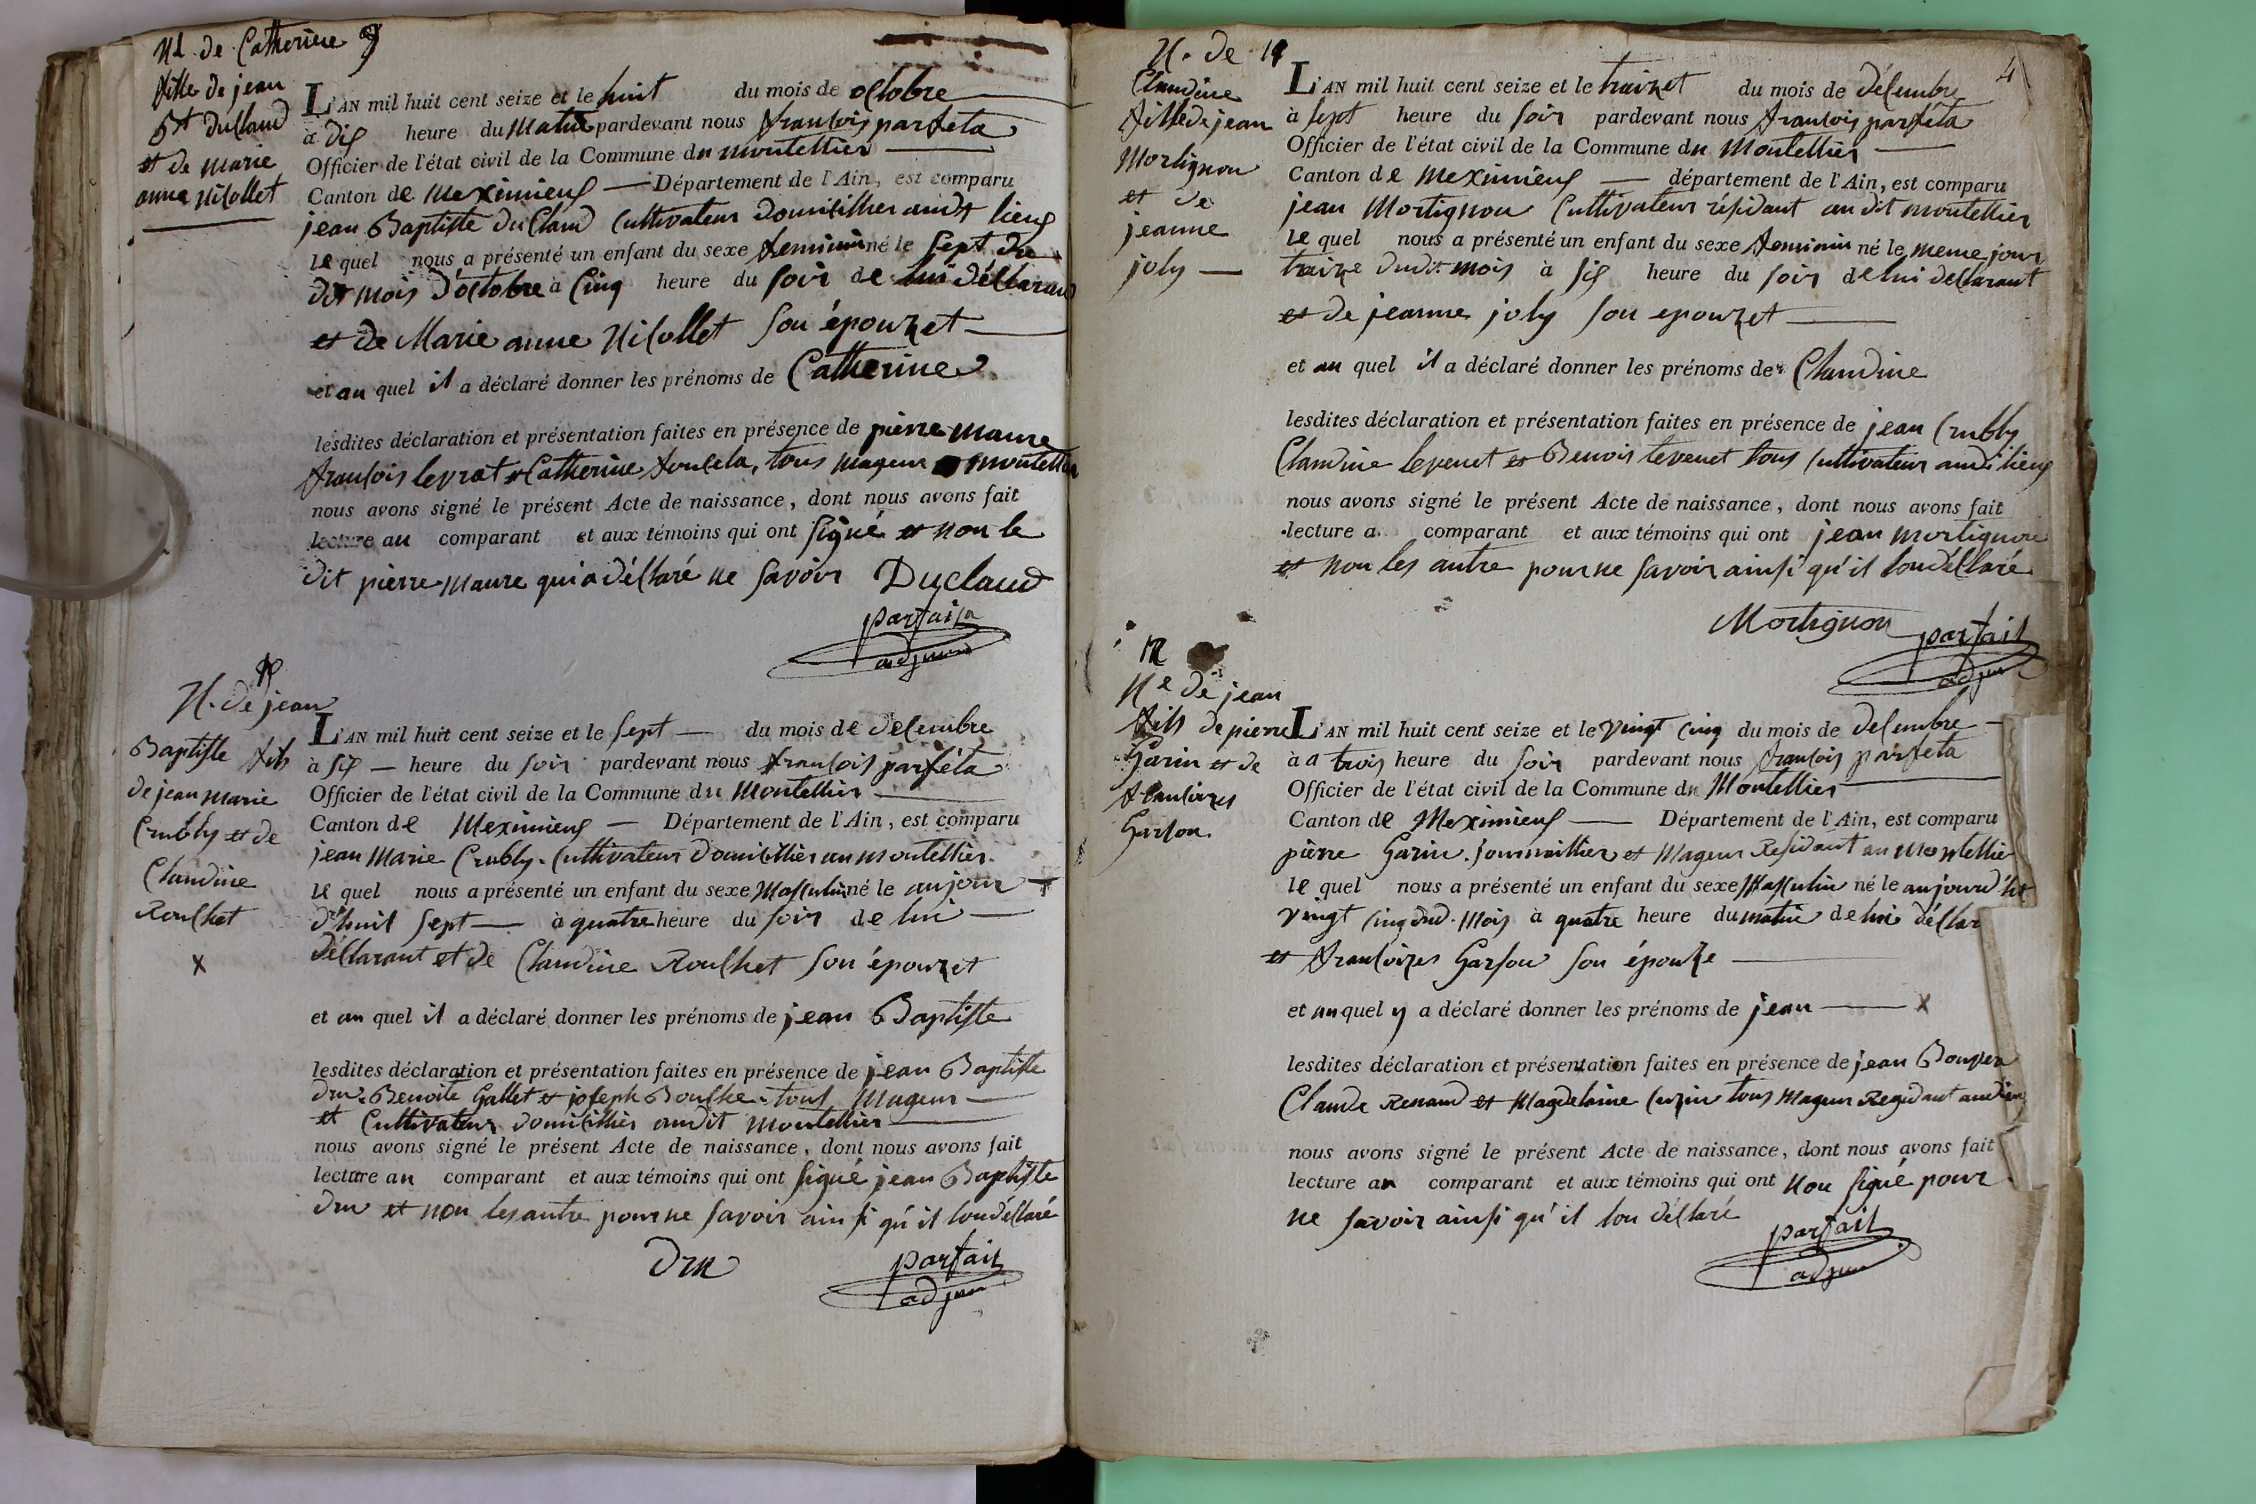 Nd. de Catherine 9
fille de jean
Bt duclaud
et de marie
anne nicollet
L'AN mil huit cent seize et le huit du mois de octobre
à dix heure du Matin pardevant nous françois parféta
Officier de l'état civil de la Commune du montellier
Canton de Meximieux Département de l'Ain, est comparu
jean Baptiste duclaud Cultivateur domicillier audt lieux
le quel nous a présenté un enfant du sexe feminin né le sept du
dit mois d'octobre à Cinq heure du soir de lui déclarant
et de Marie anne Nicollet son épouzet
et au quel il a déclaré donner les prénoms de Catherine
lesdites déclaration et présentation faites en présence de pierre maure
françois levrat et Catherine , tous mageur montellier
nous avons signé le présent Acte de naissance, dont nous avons fait
lecture au comparant et aux témoins qui ont signé et non le
dit pierre maure qui a déclaré ne savoir Duclaud
parfait
adjoint
10
N. de jean
Baptiste fils
de jean marie
Crubly et de
Claudine
Roulhet
x
L'AN mil huit cent seize et le sept du mois de decembre
à six heure du soir pardevant nous françois parféta
Officier de l'état civil de la Commune du Montellier
Canton de Meximieux Département de l'Ain, est comparu
jean Marie Crubly Cultivateur domicillier au montellier
le quel nous a présenté un enfant du sexe Masculin né le aujour
d'huit sept à quatre heure du soir de lui
déclarant et de Claudine Roulhet son épouzet
et au quel il a déclaré donner les prénoms de jean Baptiste
lesdites déclaration et présentation faites en présence de jean Baptiste
dru Benoite Gallet et joseph tous Mageur
et Cultivateur domicillier audit montellier
nous avons signé le présent Acte de naissance, dont nous avons fait
lecture au comparant et aux témoins qui ont signé jean Baptiste
dru et non les autre pour ne savoir ainsi qu'il lon déclaré
dru parfait
adjoint
N. de 11
Claudine
fille de jean
Mortignon
et de
jeanne
joly
4
L'AN mil huit cent seize et le traizet du mois de décembre
à sept heure du soir pardevant nous françois parféta
Officier de l'état civil de la Commune du Montellier
Canton de Meximieux département de l'Ain, est comparu
jean Mortignon Cultivateur résidant au dit montellier
le quel nous a présenté un enfant du sexe feminin né le meme jour
traize dudt mois à six heure du soir de lui déclarant
et de jeanne joly son epouzet
et au quel il a déclaré donner les prénoms de Claudine
lesdites déclaration et présentation faites en présence de jean Crubly
Claudine levenet et Benoit levenet tous Cultivateur audi lieux
nous avons signé le présent Acte de naissance, dont nous avons fait
lecture a comparant et aux témoins qui ont jean mortignon
et non les autre pour ne savoir ainsi qu'il lon déclaré
Mortignon parfait
adjoint
12
Ne de jean
fils de pierre
Garin et de
françoizes
Garson
L'AN mil huit cent seize et le vingt cinq du mois de decembre
à a trois heure du soir pardevant nous françois parféta
Officier de l'état civil de la Commune du Montellier
Canton de Meximieux Département de l'Ain, est comparu
pierre Garin journaillier et Mageur Residant au Montellier
le quel nous a présenté un enfant du sexe Masculin né le aujourd'hui
vingt cinq dud. Mois à quatre heure du matin de lui déclar
et françoizes Garson son épouze
et au quel y a déclaré donner les prénoms de jean x
lesdites déclaration et présentation faites en présence de jean Bouvier
Claude Renaud et Magdelaine tous Mageur Rezidant audi
nous avons signé le présent Acte de naissance, dont nous avons fait
lecture au comparant et aux témoins qui ont non signé pour
ne savoir ainsi qu'il lon déclaré
parfait
adjoint